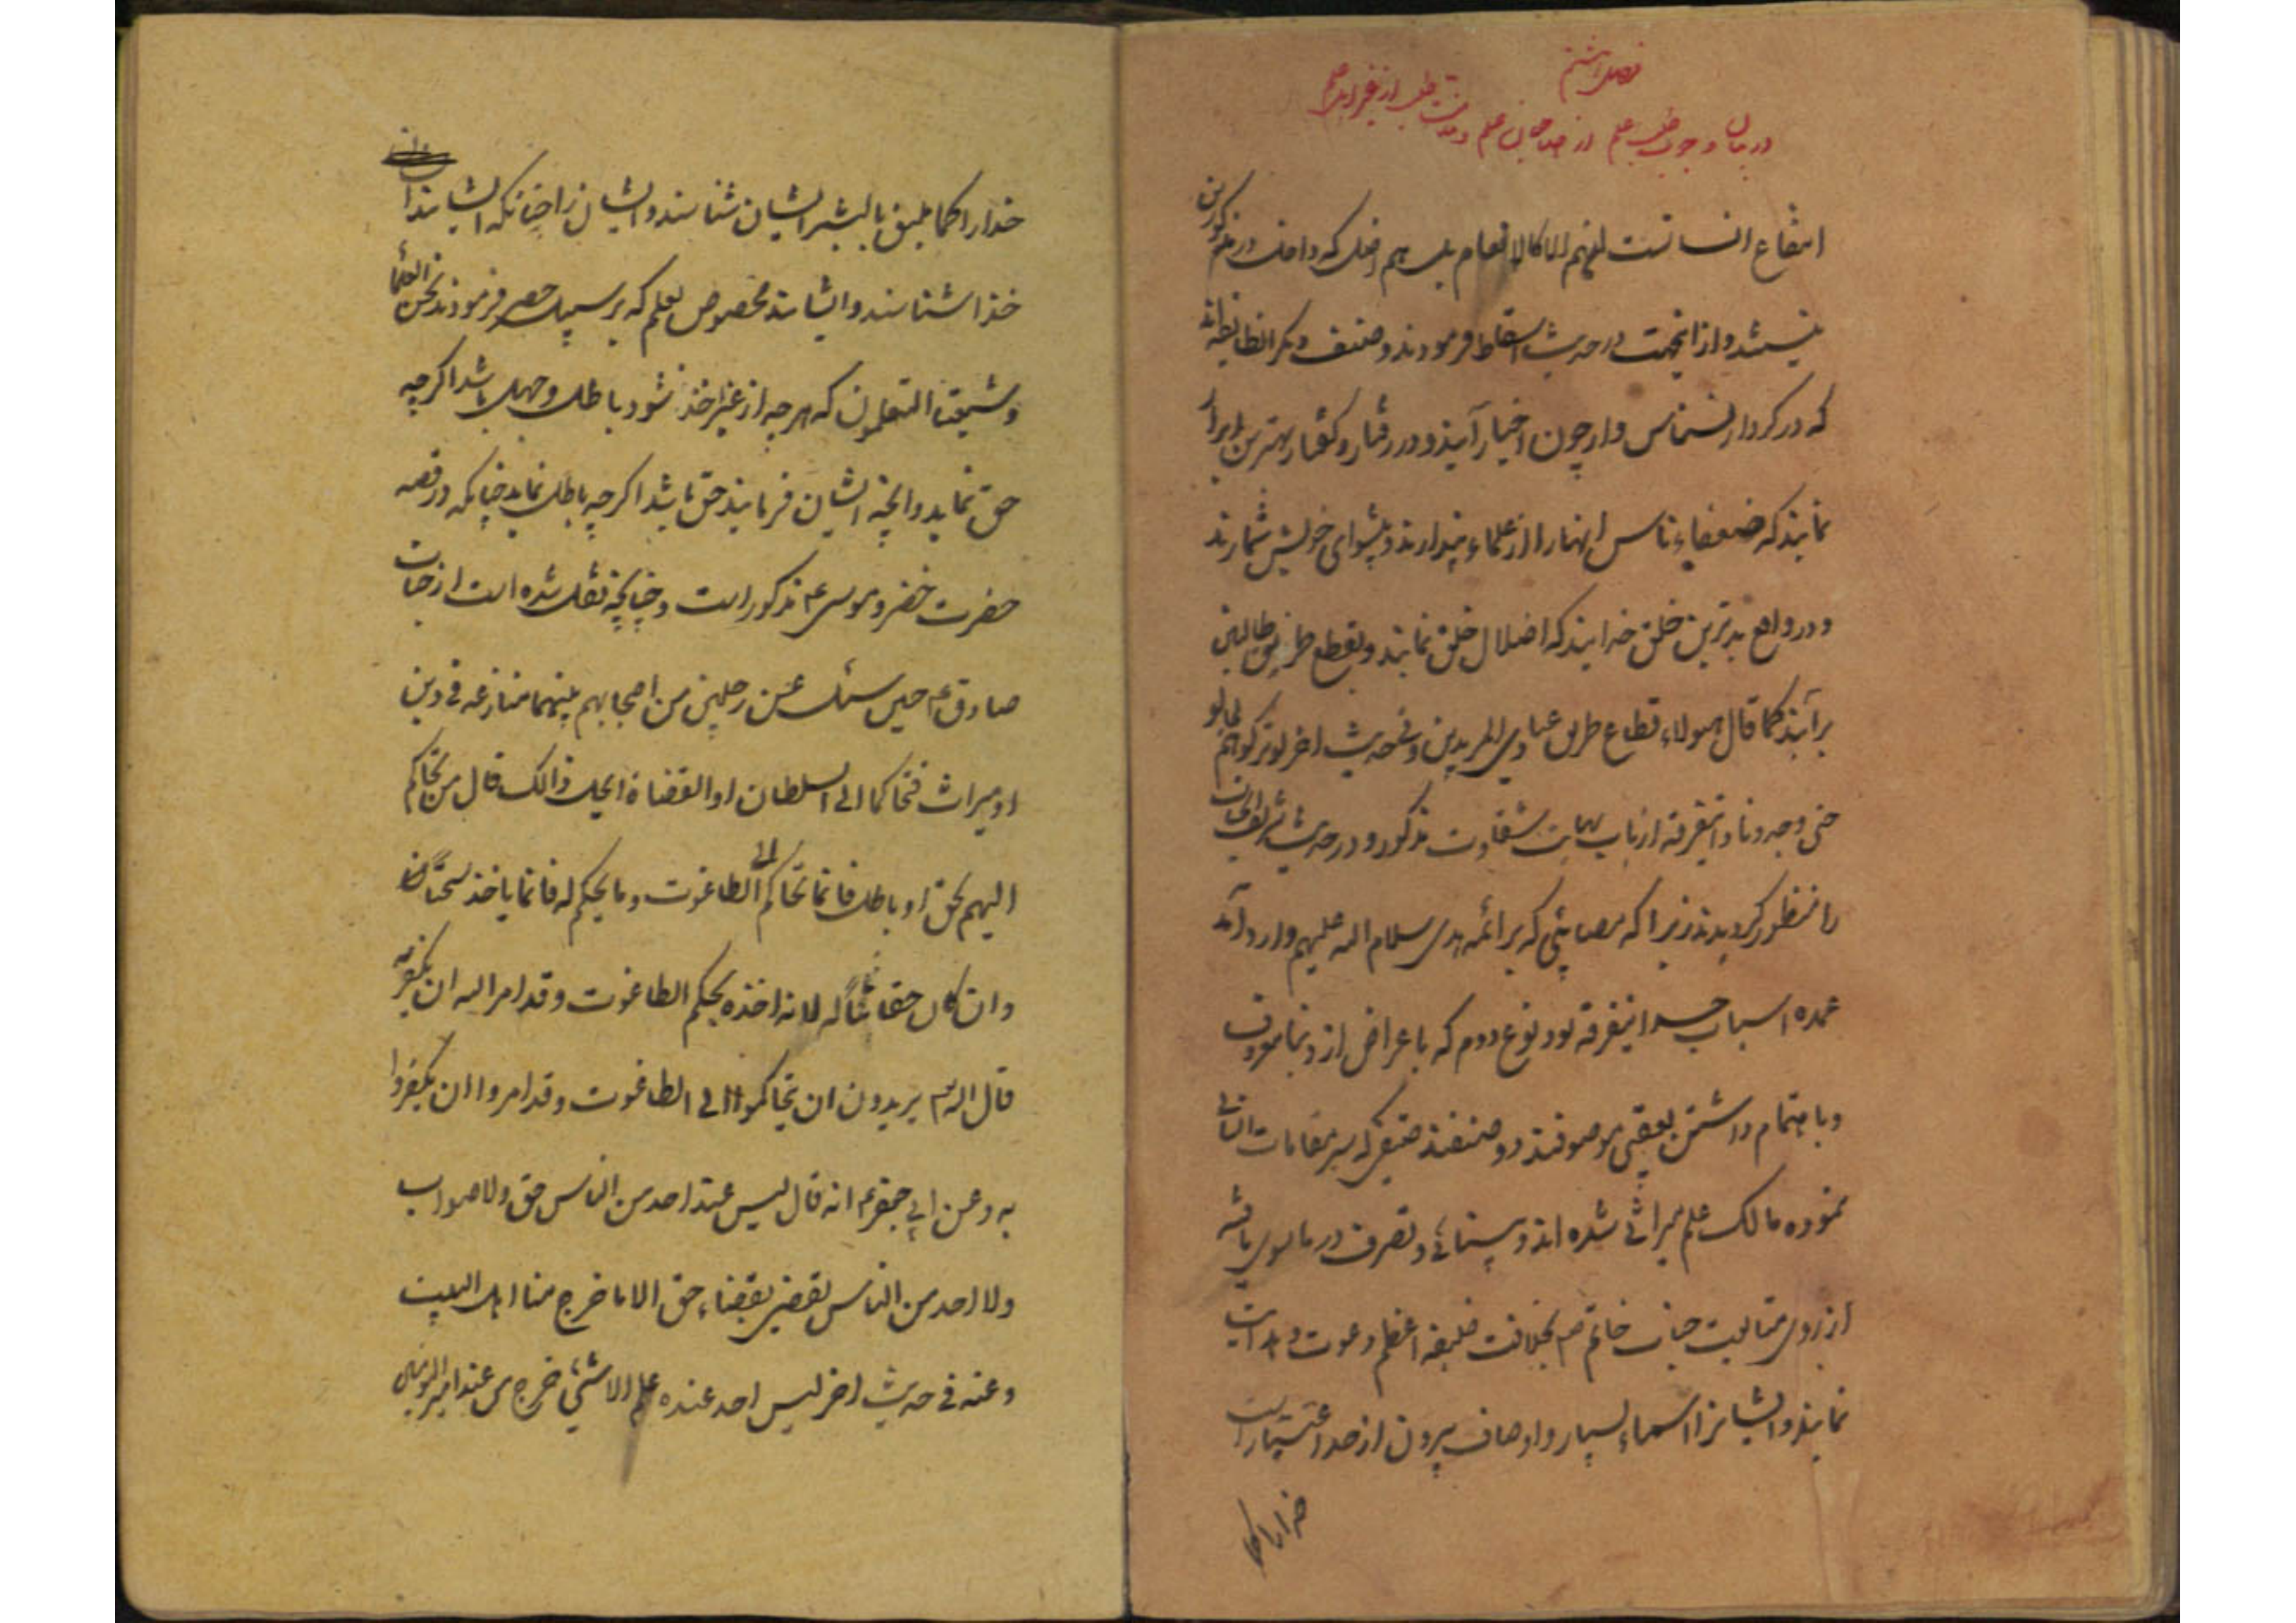 فصل هشتم
در بیان وجوب طلب علم از صاحبان علم و مذمت طلب از غیر ایشان
انتفاع انسانست انهم الا کالانعام بل هم اضل که داخل در مذکورین
نیستند و از اینجهت در حدیث اسقاط فرمودند و صنف دیگر انطایفه‌اند
که در کردار نسناس وار چون اخیار آیند و در رفتار و کفتار بهترین ابرار
نمایند که ضعفاء ناس اینها را از علماء پندارند و پیشوای خویش شمارند
و در واقع بدترین خلق خدایند که اضلال خلق نمایند و بقطع طریق طالبین
برآیند کما قال هولاء قطاع طریق عبادی المریدین و فی حدیث اخر لو ترکوهم لجالو
حتی وجدونا و اینفرقه ارباب نهایت شقاوت مذکور و در حدیث شریف
را منظور کردیدند زیرا که مصائبی که بر ائمه هدی سلام الله علیهم وارد آمد
عمده اسباب حسد اینفرقه بود نوع دوم که باعراض از دنیا معروف
و باهتمام داشتن بعقبی موصوفند دو صنفند صنفی که سیر مقامات انسانی
نموده مالک علم میراثی شده‌اند و بینائی و تصرف در ماسوی یافته
از روی متابعت جناب خاتم ص بخلافت خلیفه اعظم دعوت و هدایت
نمایند و ایشانرا اسماء بسیار و اوصاف بیرون از حد اعتبار است
خدا را کما
خدا را کما یلیق بالبشر ایشان شناسند و ایشان را چنانکه ایشایند
خدا شناسند و ایشانند مخصوص بعلم که بر سبیل حصر فرمودند نحن العلماء
و شیعتنا المتعلمون که هر چه از غیر اخذ شود باطل و جهل باشد اکرچه
حق نماید و آنچه ایشان فرمایند حق باشد اکرچه باطل نماید چنانکه در قصه
حضرت خضر و موسی ع مذکور است و چنانچه نقل شده است از جناب
صادق ع حین سئل عن رجلین من اصحابهم بینهما منازعه فی دین
او میراث فتحاکما الی السلطان او القضاة ایحل ذالک قال من تحاکم
الیهم بحق او باطل فانما تحاکم الی الطاغوت و ما یحکم له فانما یاخذ سحتا
و ان کان حقا ثابتا له لانه اخذه بحکم الطاغوت و قد امر الله ان یکفر به
قال الله تع یریدون ان یتحاکموا الی الطاغوت و قد امروا ان یکفروا
به و عن ابی جعفر ع انه قال لیس عند احد من الناس حق ولا صواب
ولا احد من الناس یقضی بقضاء حق الا ما خرج منا اهل البیت
و عنه فی حدیث اخر لیس احد عنده علم الا شیئ خرج من عند امیر المومنین